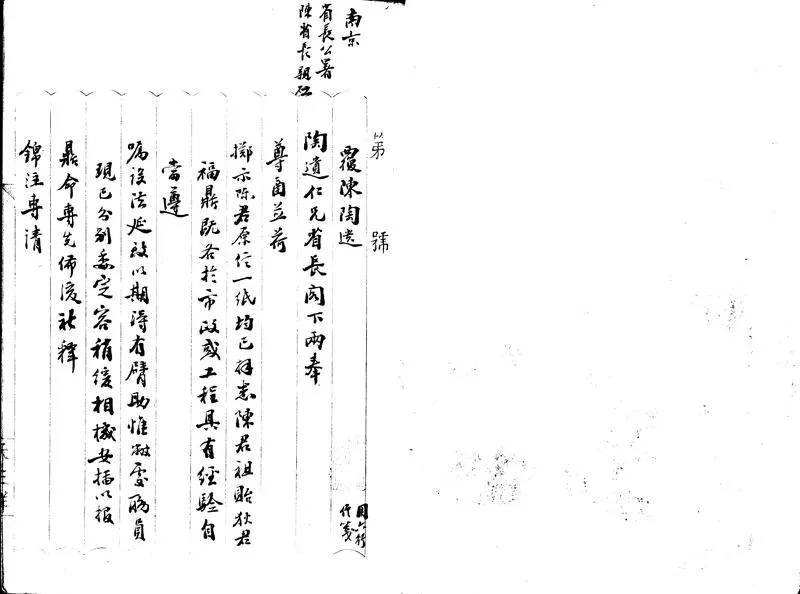 南京
省長公署
陳省長親啟
第 號
覆陳陶遺
陶遺仁兄省長閣下兩奉
尊函並荷
擲示陳君原信一紙均已詳悉陳君祖貽狄君
福鼎既各於市政或工程具有經驗自
當遵
囑設法延致以期得有臂助惟敝處職員
現已分別委定容稍緩相機安插以報
鼎命專先佈復祈釋
錦注專清
用八行
信箋